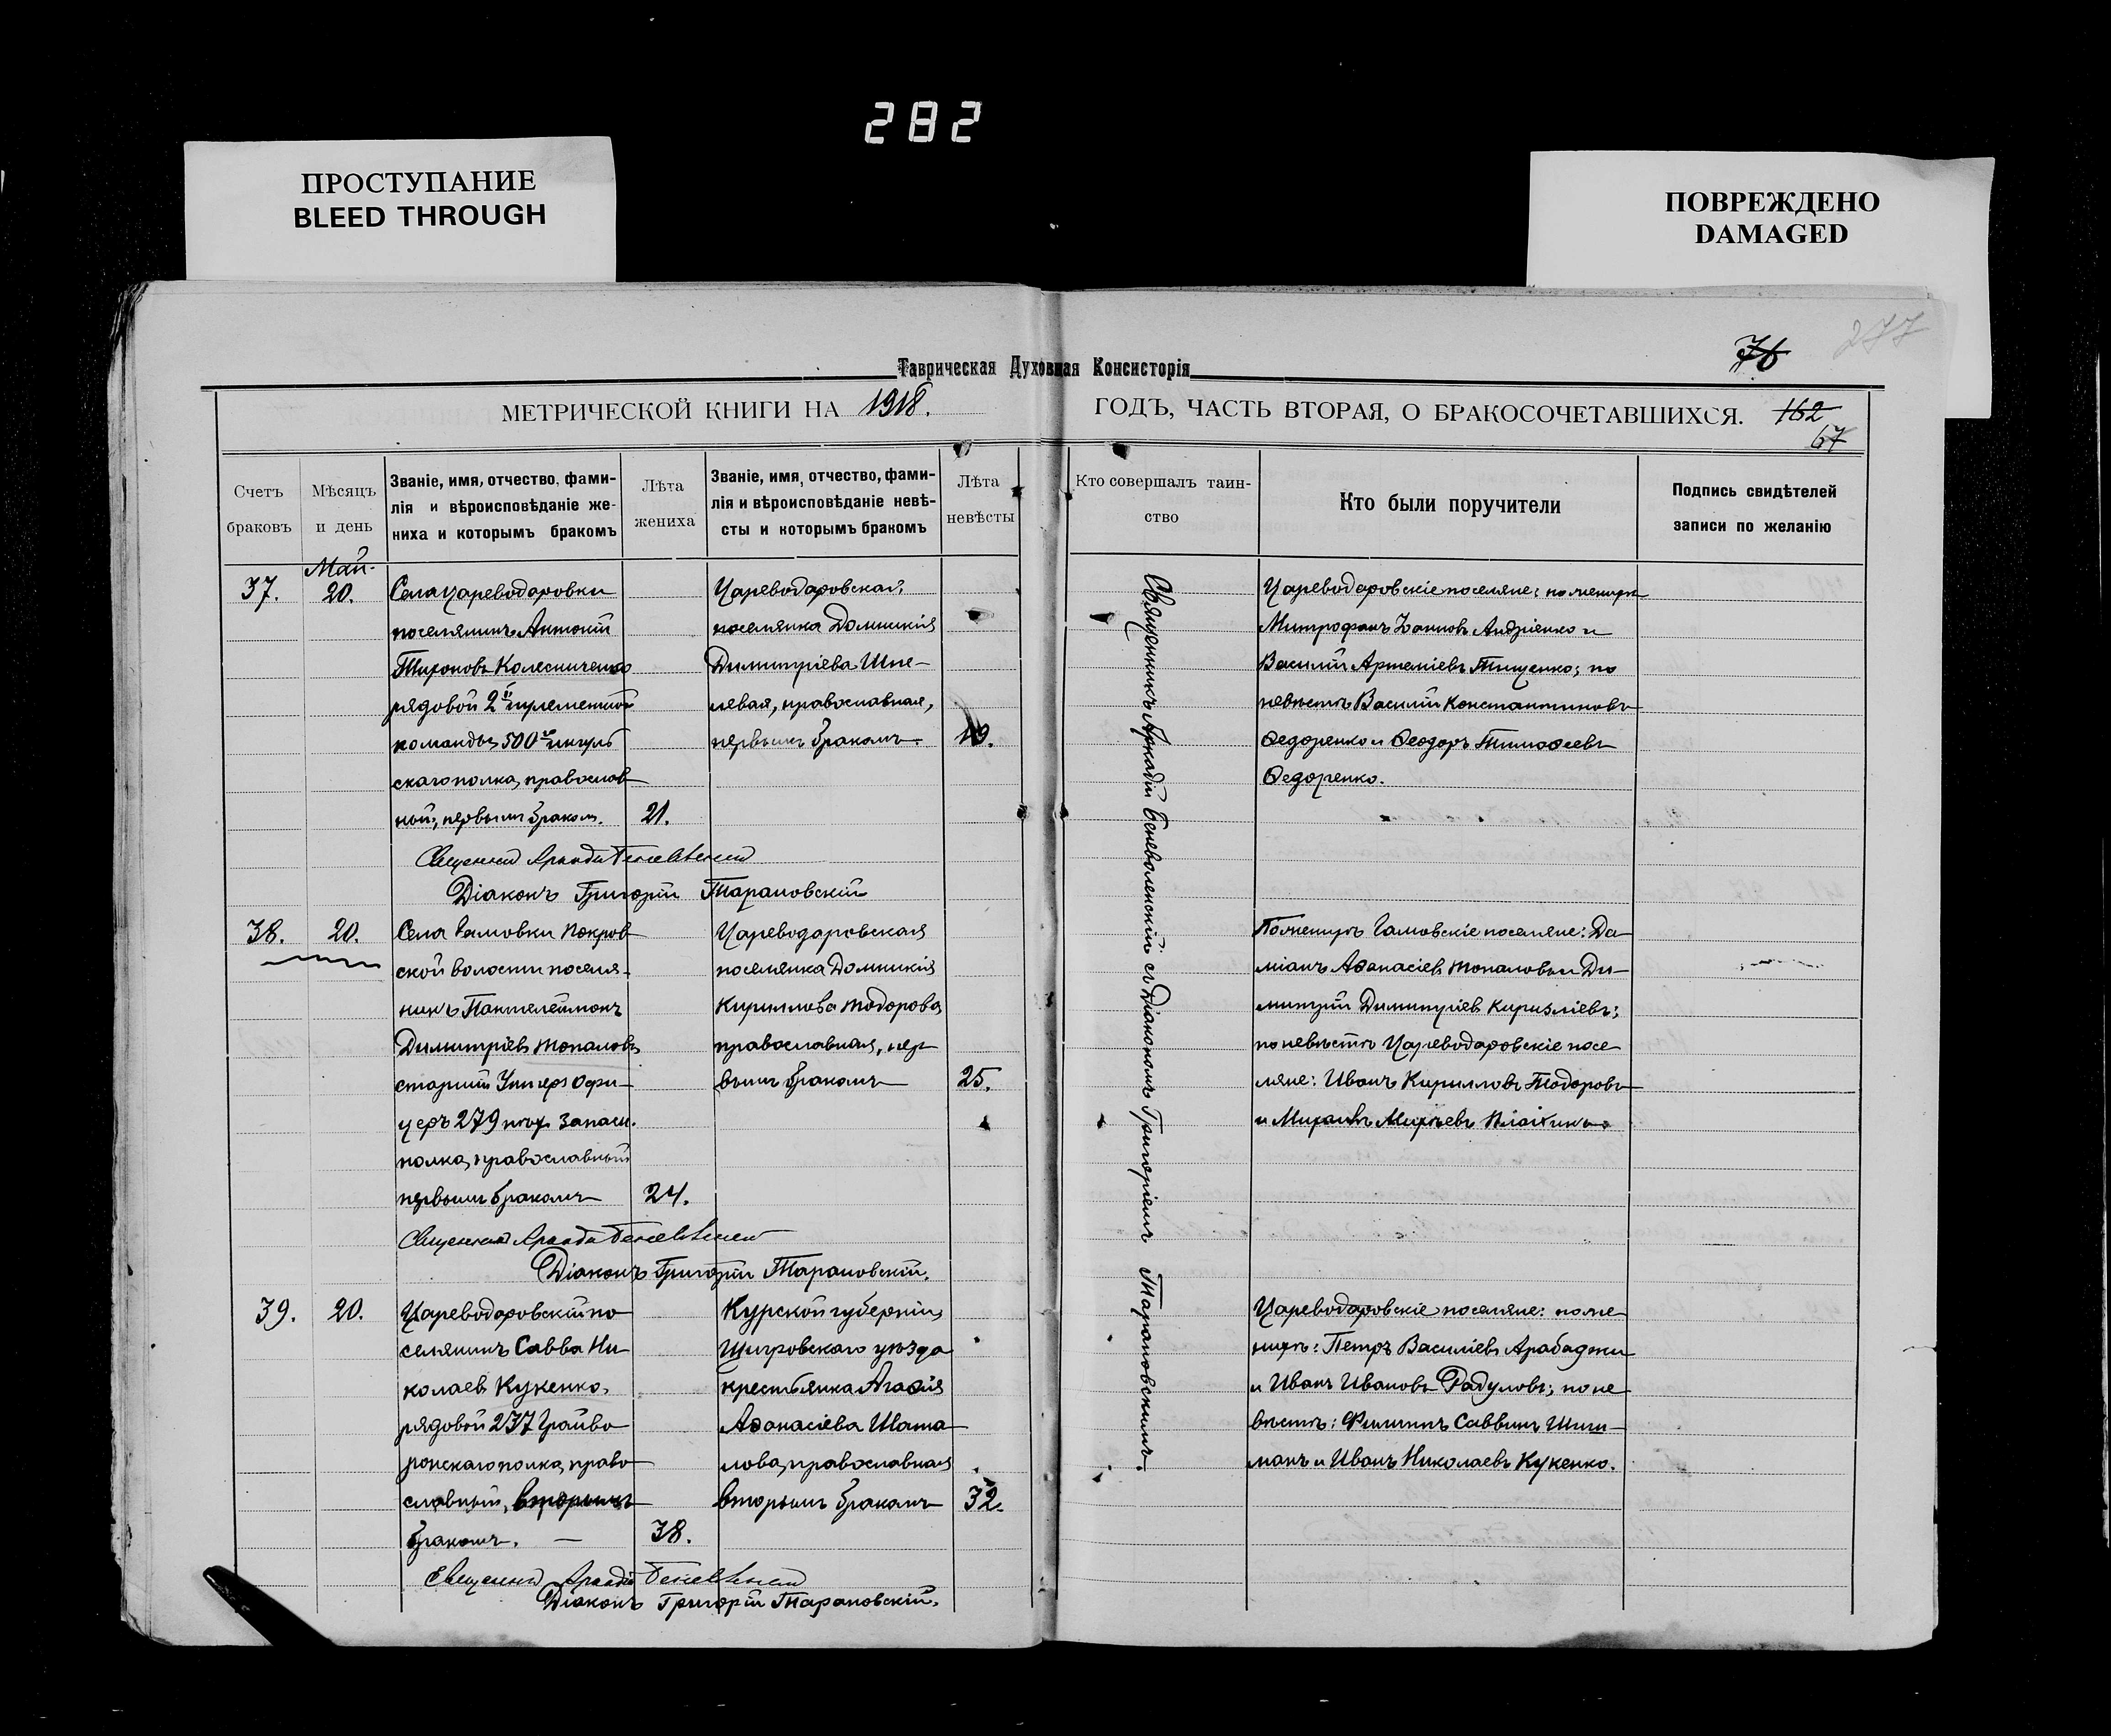 282
ПРОСТУПАНИЕ
BLEED THROUGH
ПОВРЕЖДЕНО
DAMAGED
277
76
Таврическая Духовная Консисторія
МЕТРИЧЕСКОЙ КНИГИ НА 1918. ГОДЪ, ЧАСТЬ ВТОРАЯ, О БРАКОСОЧЕТАВШИХСЯ. 162
67
Счетъ
браковъ
Мѣсяцъ
и день
Званіе, имя, отчество, фами-
лія и вѣроисповѣданіе же-
ниха и которымъ бракомъ
Лѣта
жениха
Званіе, имя, отчество, фами-
лія и вѣроисповѣданіе невѣ-
сты и которымъ бракомъ
Лѣта
невѣсты
Кто совершалъ таин-
ство
Кто были поручители
Подпись свидѣтелей
записи по желанію
Май.
37.
20.
Села Цареводаровки
поселянинъ Антоній
Тихоновъ Колесниченко
рядовой 2й пулеметной
команды 500го
скаго полка, православ
ной, первымъ бракомъ.
21.
Цареводаровская,
поселянка Домникія
Димитріева Шпе-
левая, православная,
первымъ бракомъ.
19.
Священникъ Аркадій Беневоленскій съ Діакономъ Григоріемъ Тарановскимъ.
Цареводаровскіе поселяне: по женихѣ
Митрофанъ Іоанновъ Андріенко и
Василій Артеміевъ Тищенко; по
невѣстѣ Василій Константиновъ
Ѳедоренко и Ѳеодоръ Тимоѳеевъ
Ѳедоренко.
Священникъ Аркадій Беневоленскій
Діаконъ Григорій Тарановскій
38.
20.
Села Гамовки Покров
ской волости поселя-
нинъ Пантелеймонъ
Димитріевъ Топаловъ
старшій Унтеръ Офи-
церъ 279 пѣх. запасн.
полка, православный
первымъ бракомъ
24.
Цареводаровская
поселянка Домникія
Кириллова Тодорова
православная, пер
вымъ бракомъ
25.
По женихѣ Гамовскіе поселяне: Да-
міанъ Аѳанасіевъ Топаловъ и Ди-
митрій Димитріевъ
по невѣстѣ Цареводаровскіе посе
ляне: Иванъ Кирилловъ Тодоровъ
и Михаилъ
Священникъ Аркадій Беневоленскій
Діаконъ Григорій Тарановскій.
39.
20.
Цареводаровскій по
селянинъ Савва Ни
колаевъ Кукенко,
рядовой 237 Грайво
ронскаго полка, право
славный, вторымъ
бракомъ. —
38.
Курской губерніи,
Щигровскаго уѣзда
крестьянка Агаѳія
Аѳанасіева Шата
лова, православная
вторымъ бракомъ
32.
Цареводаровскіе поселяне: по же
нихѣ: Петръ Василіевъ Арабаджи
и Иванъ Ивановъ Радуловъ; по не
вѣстѣ: Филиппъ Саввинъ Шиш-
манъ и Иванъ Николаевъ Кукенко.
Священникъ Аркадій Беневоленскій
Діаконъ Григорій Тарановскій.